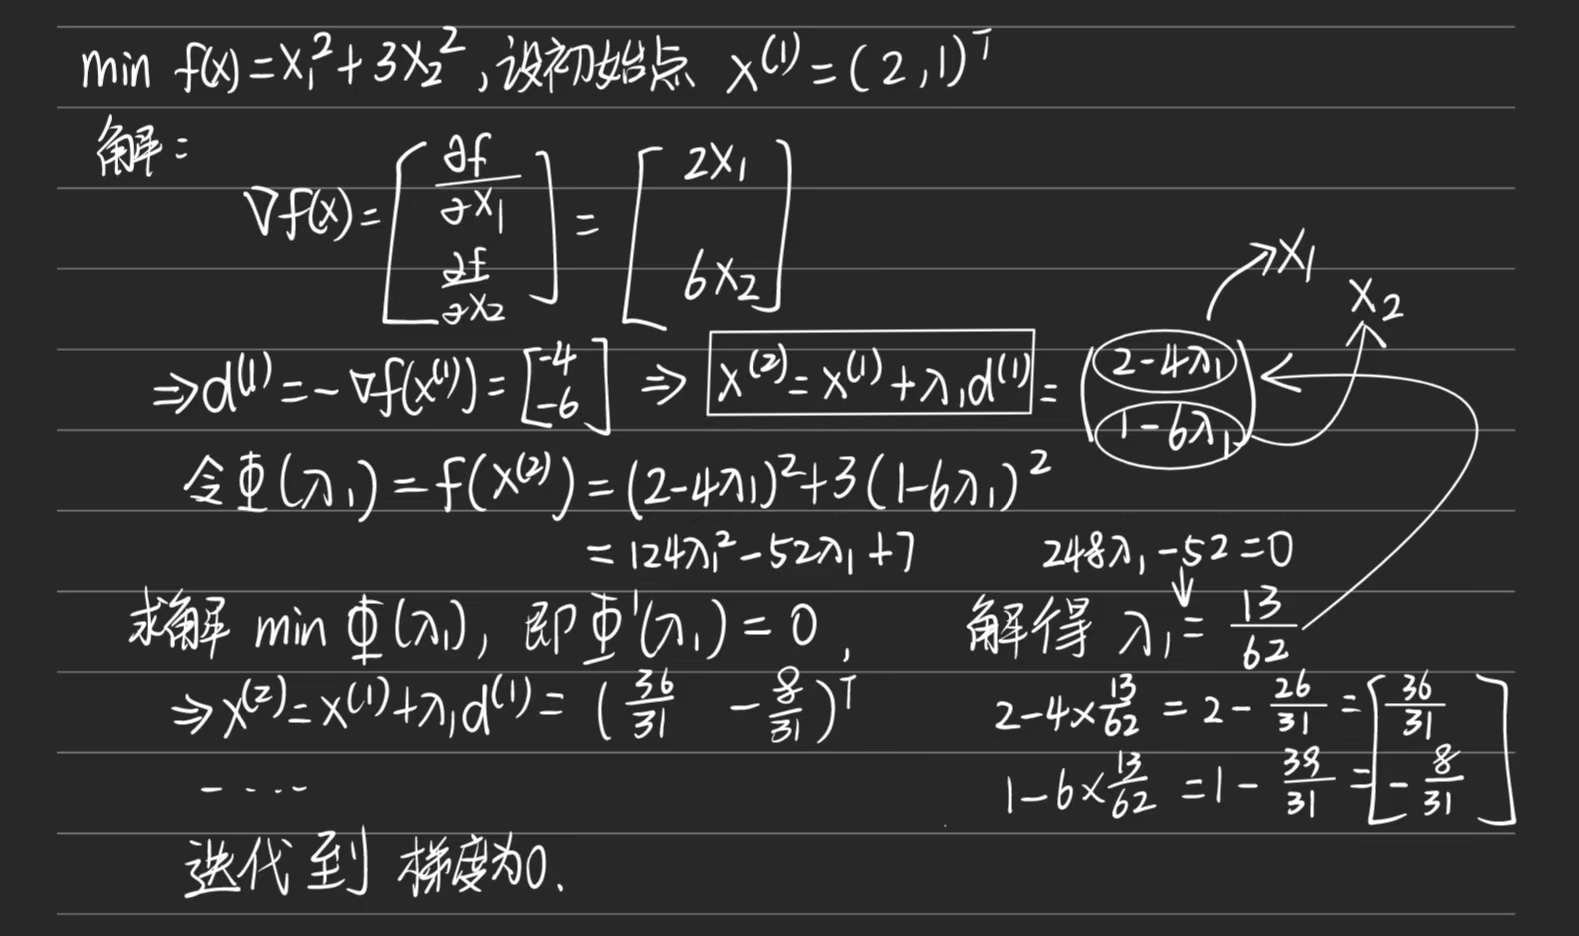 min f(x)=x₁²+3x₂²,设初始点 x⁽¹⁾=(2,1)ᵀ
解:
∇f(x)=[∂f/∂x₁ ∂f/∂x₂]=[2x₁ 6x₂]
→x₁
x₂
⇒d⁽¹⁾=-∇f(x⁽¹⁾)=[-4 -6] ⇒ x⁽²⁾=x⁽¹⁾+λ₁d⁽¹⁾=(2-4λ₁ 1-6λ₁)
令Φ(λ₁)=f(x⁽²⁾)=(2-4λ₁)²+3(1-6λ₁)²
=124λ₁²-52λ₁+7
248λ₁-52=0
求解 min Φ(λ₁), 即Φ'(λ₁)=0, 解得 λ₁=13/62
⇒x⁽²⁾=x⁽¹⁾+λ₁d⁽¹⁾=(36/31 -8/31)ᵀ
2-4×13/62=2-26/31=[36/31
1-6×13/62=1-39/31=-8/31]
-....
迭代到 梯度为0.